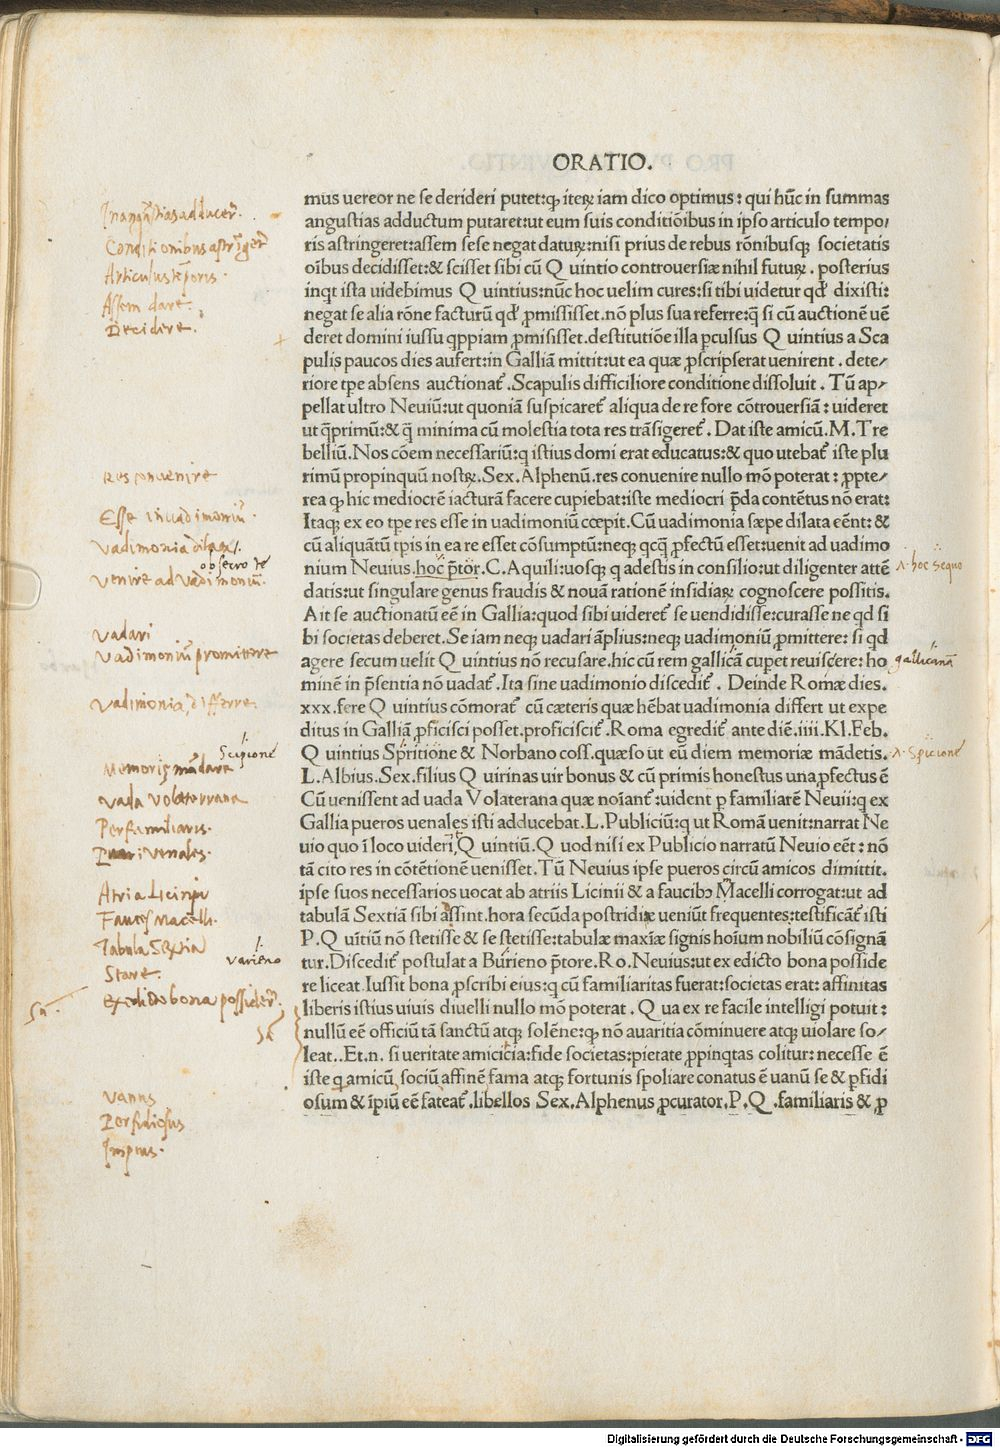 ORATIO.
mus uereor ne se derideri putet:ꝙ iteꝝ iam dico optimus: qui hūc in summas
angustias adductum putaret:ut eum suis conditiōibus in ipso articulo tempo/
ris astringeret:assem sese negat datuꝝ:nisi prius de rebus rōnibusqꝫ societatis
oībus decidisset:& scisset sibi cū Q uintio controuersiæ nihil futuꝝ. posterius
inqt ista uidebimus Q uintius:nūc hoc uelim cures:si tibi uidetur qd' dixisti:
negat se alia rōne facturū qd' ꝓmisisset.nō plus sua referre:q̄ si cū auctionē uē
deret domini iussu qppiam ꝓmisisset.destitutiōe illa ꝑculsus Q uintius a Sca
pulis paucos dies aufert:in Galliā mittit:ut ea quæ ꝓscripserat uenirent. dete/
riore tꝑe absens auctionat̄.Scapulis difficiliore conditione dissoluit. Tū ap/
pellat ultro Neuiū:ut quoniā suspicaret̄ aliqua de re fore cōtrouersiā: uideret
ut q̄primū:& q̄ minima cū molestia tota res trāsigeret̄. Dat iste amicū.M.Tre
belliū.Nos cōem necessariū:q istius domi erat educatus:& quo utebat̄ iste plu
rimū propinquū nostꝝ.Sex.Alphenū.res conuenire nullo mō poterat: ꝓpte/
rea ꝙ hic mediocrē iacturā facere cupiebat:iste mediocri p̄da contētus nō erat:
Itaqꝫ ex eo tꝑe res esse in uadimoniū cœpit.Cū uadimonia sæpe dilata eēnt: &
cū aliquātū tꝑis in ea re esset cōsumptū:neqꝫ qcq̄ ꝓfectū esset:uenit ad uadimo
nium Neuius.hoc p̄tor.C.Aquili:uosqꝫ q adestis in consilio:ut diligenter attē
datis:ut singulare genus fraudis & nouā rationē insidiaꝝ cognoscere possitis.
Ait se auctionatū eē in Gallia:quod sibi uideret̄ se uendidisse:curasse ne qd si
bi societas deberet.Se iam neqꝫ uadari āplius:neqꝫ uadimoniū ꝓmittere: si qd
agere secum uelit Q uintius nō recusare.hic cū rem gallicā cupet reuiscere: ho
minē in p̄sentia nō uadat̄.Ita sine uadimonio discedit̄. Deinde Romæ dies.
xxx.fere Q uintius cōmorat̄ cū cæteris quæ hēbat uadimonia differt ut expe
ditus in Galliā ꝓficisci posset.proficiscit̄.Roma egredit̄ ante diē.iiii.Kl.Feb.
Q uintius Spritione & Norbano coss.quæso ut eū diem memoriæ mādetis.
L.Albius.Sex.filius Q uirinas uir bonus & cū primis honestus una ꝓfectus ē
Cū uenissent ad uada Volaterana quæ noīant̄:uident ꝑ familiarē Neuii:q ex
Gallia pueros uenales isti adducebat.L.Publiciū:q ut Romā uenit:narrat Ne
uio quo ī loco uiderī Q uintiū.Q uod nisi ex Publicio narratū Neuio eēt: nō
tā cito res in cōtētionē uenisset.Tū Neuius ipse pueros circū amicos dimittit.
ipse suos necessarios uocat ab atriis Licinii & a faucibꝰ Macelli corrogat:ut ad
tabulā Sextiā sibi assint.hora secūda postridie ueniūt frequentes:testificāt̄ isti
P.Q uītiū nō stetisse & se stetisse:tabulæ maxiæ signis hoīum nobiliū cōsignā
tur.Discedit̄ postulat a Burieno p̄tore.Ro.Neuius:ut ex edicto bona posside
re liceat.Iussit bona ꝓscribi eius:q cū familiaritas fuerat:societas erat: affinitas
liberis istius uiuis diuelli nullo mō poterat. Q ua ex re facile intelligi potuit:
nullū eē officiū tā sanctū atqꝫ solēne:ꝙ nō auaritia cōminuere atqꝫ uiolare so/
leat..Et.n. si ueritate amicicia:fide societas:pietate ꝓpinqtas colitur: necesse ē
iste q amicū sociū affinē fama atqꝫ fortunis spoliare conatus ē uanū se & ꝑfidi
osum & īpiū eē fateat̄.libellos Sex.Alphenus ꝓcurator.P.Q .familiaris & ꝓ
In angustias adducer̄.
Conditionibus astrīger̄
Articulus tēporis.
Assem dare.
Decidere.
Res convenire
Esse in vadimoniū.
Vadimonia dilata
obsecro te
Venire ad vadimoniū.
Vadari
Vadimoniū promittere
Vadimonia differre.
Scipione
Memorię mādare
Vada Volaterrana
Per familiaris.
Pueri venales.
Atria Licinij
Fauces Macelli.
Tabula Sextia
varieno
Stare
Ex edicto bona possider̄.
Vanus
Perfidiosus
Impius.
hoc sequo
gallicanā
Spicione
Digitalisierung gefördert durch die Deutsche Forschungsgemeinschaft - DFG